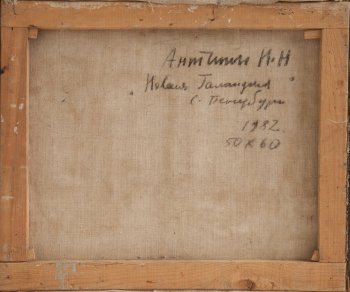 Антипин И.Н
"Новая Голландия"
С-Петербург
1992
50х60